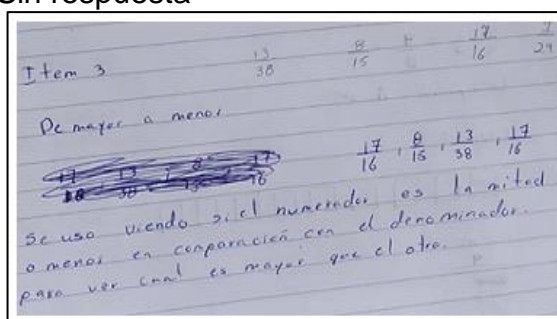 Sin respuesta
Item 3 13/38 8/15 17/16 7/29
De mayor a menor
17/16 , 8/15 , 13/38 , 17/16
Se uso viendo si el numerador es la mitad
o menor en comparación con el denominador.
para ver cual es mayor que el otro.